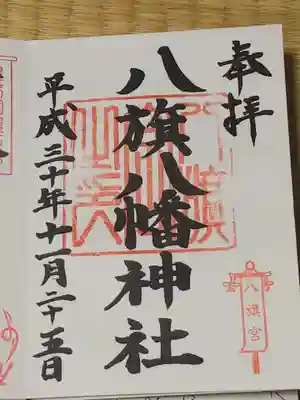 奉拝
八旗八幡神社
平成三十年十一月二十五日
八旗宮